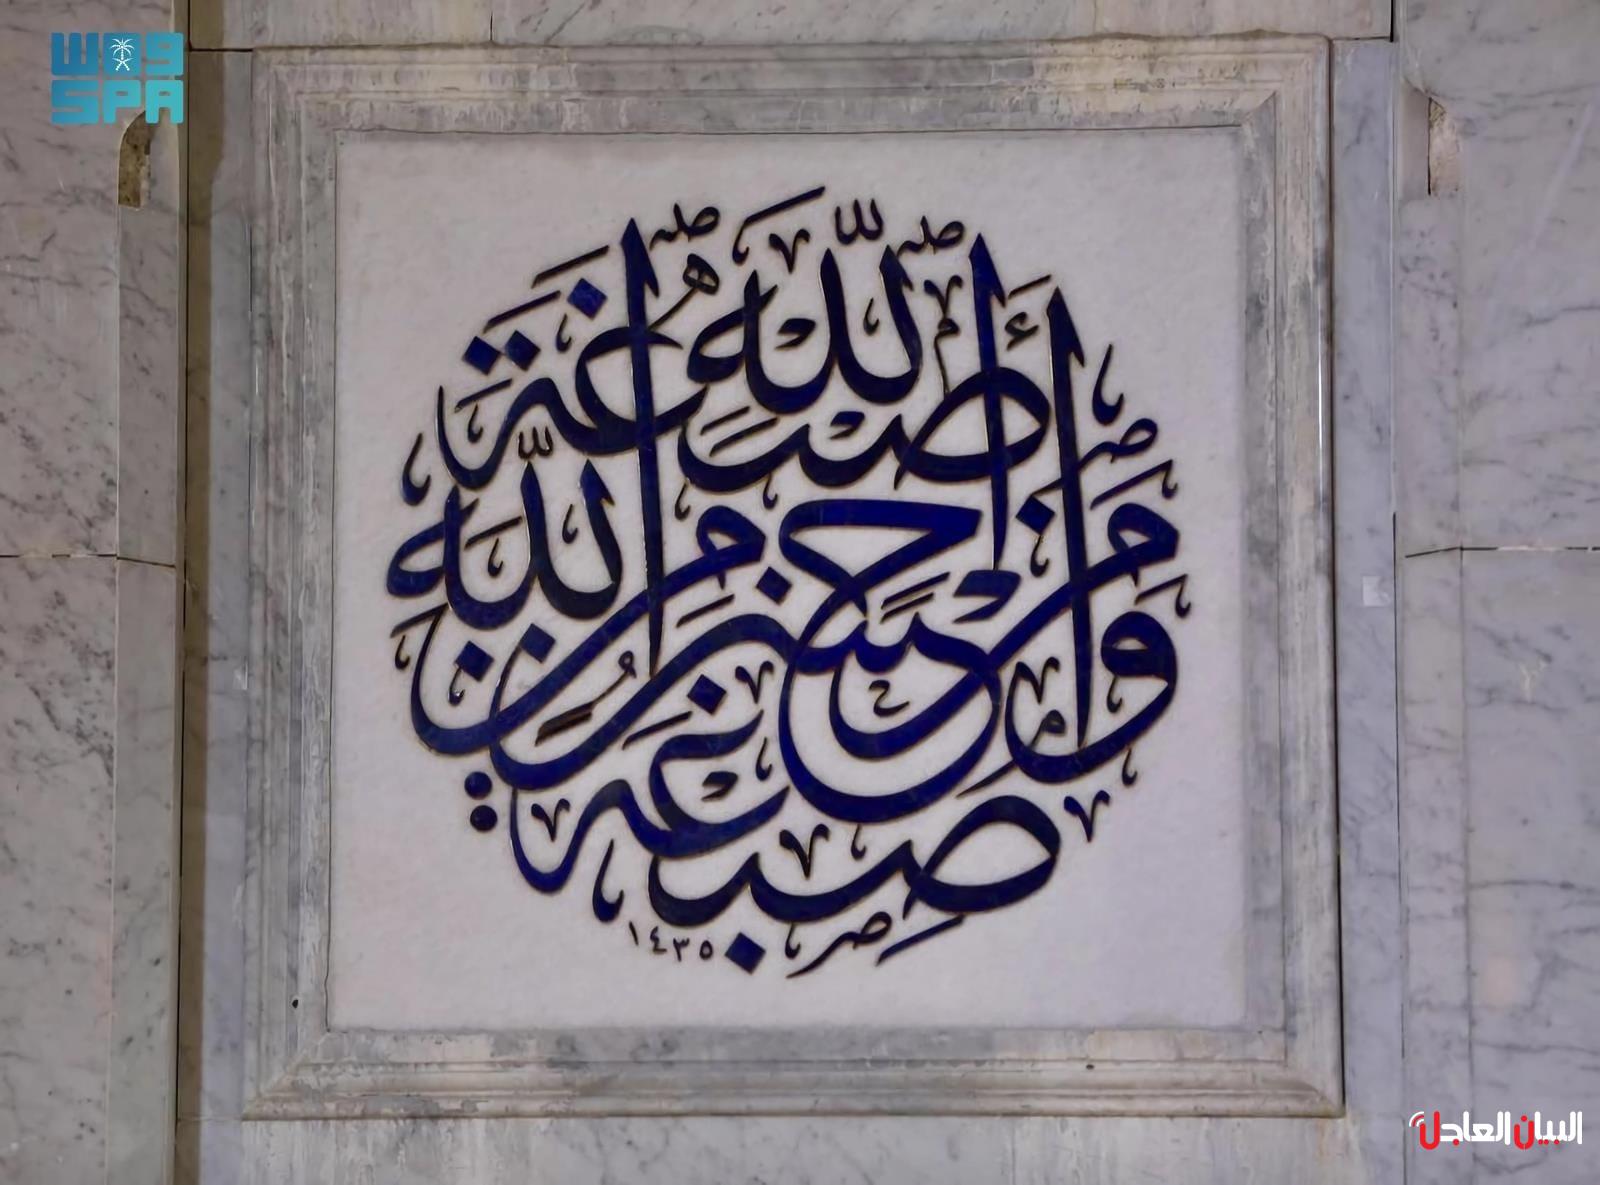 واس
SPA
صِبْغَةَ اللَّهِ وَمَنْ أَحْسَنُ مِنَ اللَّهِ صِبْغَةً
١٤٣٥
البيان العاجل